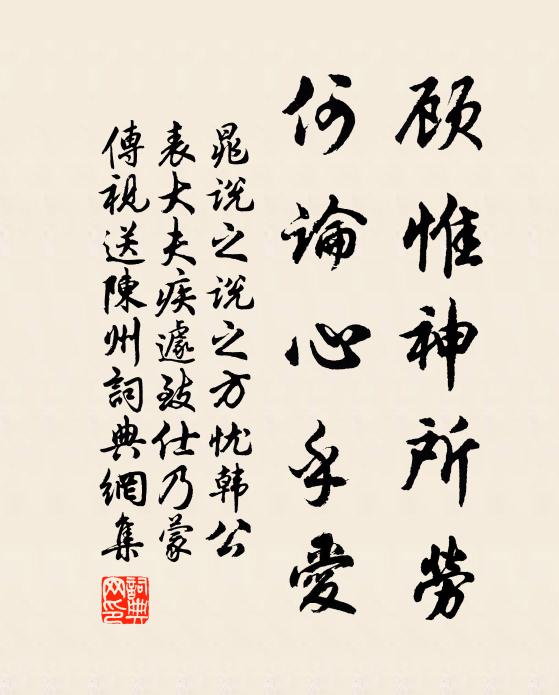 顾惟神所劳
何论心手爱
晁说之说之方忧韩公
表大夫疾遽致仕乃蒙
傳視送陳州詞典網集
詞典網印